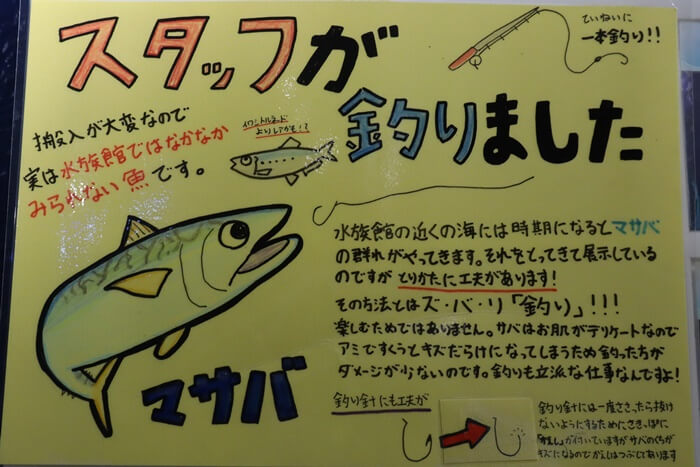 スタッフが
釣りました
ていねいに
一本釣り!!
搬入が大変なので
実は水族館ではなかなか
みられない魚です。
イワシトルネード
よりレアかも!?
水族館の近くの海には時期になるとマサバ
の群れがやってきます。それをとってきて展示している
のですがとりかたに工夫があります!
その方法とはズ・バ・リ「釣り」!!!
楽しむためではありません。サバはお肌がデリケートなので
アミですくうとキズだらけになってしまうため釣った方が
ダメージが少ないのです。釣りも立派な仕事なんですよ!
マサバ
釣り針にも工夫が
釣り針には一度ささったら抜け
ないようにするためにさきっぽに
「かえし」が付いていますがサバのくちが
キズになるのでかえしはつぶしてあります